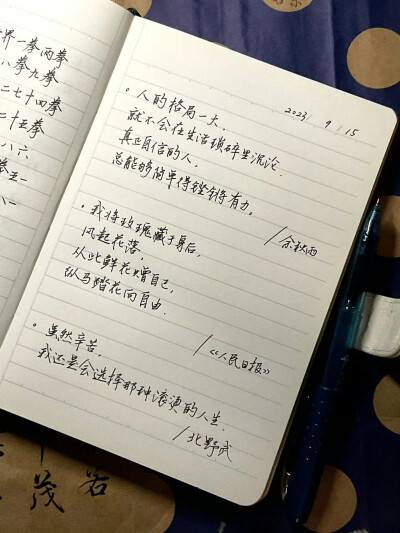 界一拳两拳
八拳九拳
二七十四拳
二十五拳
八六
拳五一
八一
2023 9 15
。人的格局一大，
就不会在生活琐碎里沉沦。
真正自信的人，
总能够简单得铿锵有力。
/余秋雨
。我将玫瑰藏于身后，
风起花落，
从此鲜花赠自己，
纵马踏花向自由.
/《人民日报》
。虽然辛苦，
我还是会选择那种滚烫的人生.
/北野武
若
茂